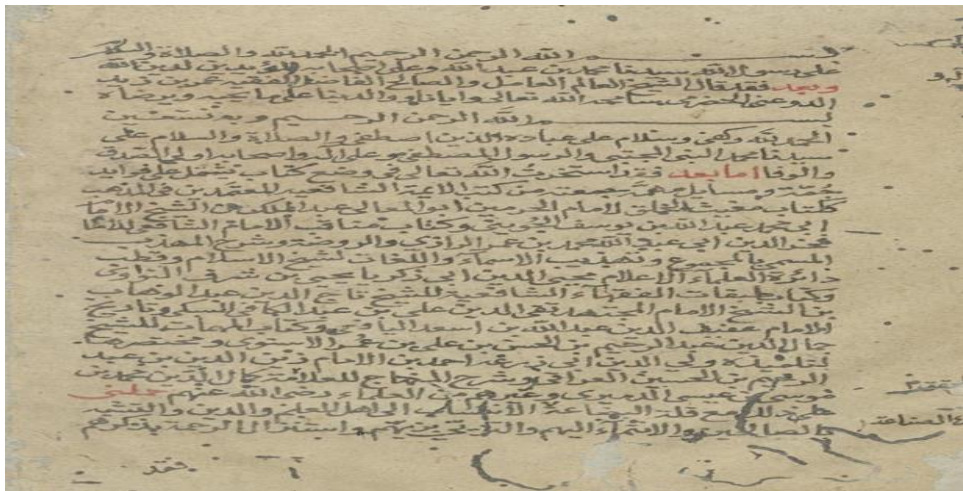 بسم الله الرحمن الرحيم الحمد لله والصلاة والسلام
على رسول الله سيدنا محمد بن عبد الله وعلى المؤيدين لدين الله
وبعد فقد قال الشيخ العالم العامل والصالح الفاضل الفقير عمر بن زيد
الدوعني الحضرمي سامحه الله تعالى وايانا والدينا على ما يحبه ويرضاه
بسم الله الرحمن الرحيم وبه نستعين
الحمد لله وكفى وسلام على عباده الذين اصطفى والصلاة والسلام على
سيدنا محمد النبي المجتبى والرسول المصطفى وعلى اله واصحابه اولي الصدق
والوفا اما بعد فقد استخرت الله تعالى في وضع كتاب تشتمل على فوايد
جمة ومسايل مهمة جمعته من كتب الائمة الشافعيه المعتمدين في المذهب
ككتاب مغيث الخلق لامام الحرمين ابو المعالي عبد الملك بن الشيخ الامام
ابي محمد عبد الله بن يوسف الجويني وكتاب مناقب الامام الشافعي للامام
فخر الدين ابي عبد الله محمد بن عمر الرازي والروضة وشرح المهذب
المسمى بالمجموع وتهذيب الاسماء واللغات لشيخ الاسلام وقطب
دائرة العلماء الاعلام محيي الدين ابي زكريا يحيى بن شرف النواوي
وكتاب طبقات الفقهاء الشافعية للشيخ تاج الدين عبد الوهاب
بن الشيخ الامام المجتهد تقي الدين علي بن عبد الكافي السبكي وتاريخ
الامام عفيف الدين عبد الله بن اسعد اليافعي وكتاب المهمات للشيخ
جمال الدين عبد الرحيم بن الحسن بن علي بن عمر الاسنوي ومختصره
لتلميذه ولي الدين ابي زرعة احمد بن الامام زين الدين بن عبد
الرحيم بن الحسين العراقي وشرح المنهاج للعلامة كمال الدين محمد بن
موسى بن عيسى الدميري وغيرهم من العلماء رضي الله عنهم حملني
على ذلك مع قلة البضاعة الانتساب الى اهل العلم والدين والتشبه
بالصالحين والانتماء اليهم والترجي بهم واستنزال الرحمة بذكرهم
فقد